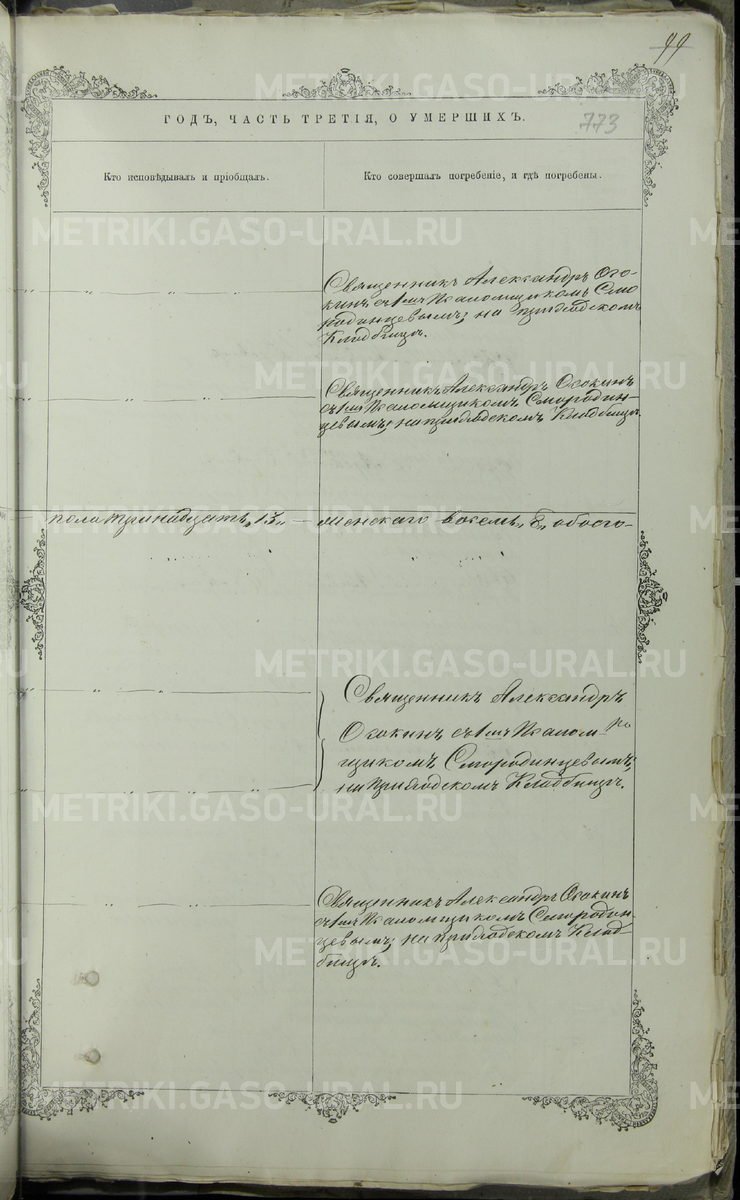 99
773
ГОДЪ, ЧАСТЬ ТРЕТІЯ, О УМЕРШИХЪ.
Кто исповѣдывалъ и пріобщалъ.
Кто совершалъ погребеніе, и гдѣ погребены.
Священникъ Александръ Осо-
кинъ съ псаломщикомъ Смо
родинцевымъ; на приходскомъ
кладбищѣ.
Священникъ Александръ Осокинъ
съ псаломщикомъ Смородин-
цевымъ; на приходскомъ кладбищѣ.
пола тринадцать „13„ — женскаго восемь „8„ обоего-
Священникъ Александръ
Осокинъ съ псалом
щикомъ Смородинцевымъ;
на приходскомъ кладбищѣ.
Священникъ Александръ Осокинъ
съ псаломщикомъ Смородин
цевымъ; на приходскомъ клад
бищѣ.
METRIKI.GASO-URAL.RU